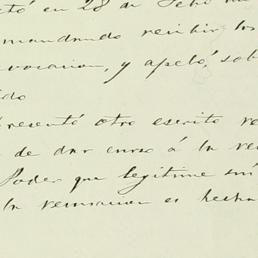 tó en 28 de
mandando recibir los
vocacion, y apeló, sob
ido
presentó otro escrito re
de dar curso á la re
Poder que legitime su
la revocacion es hecha